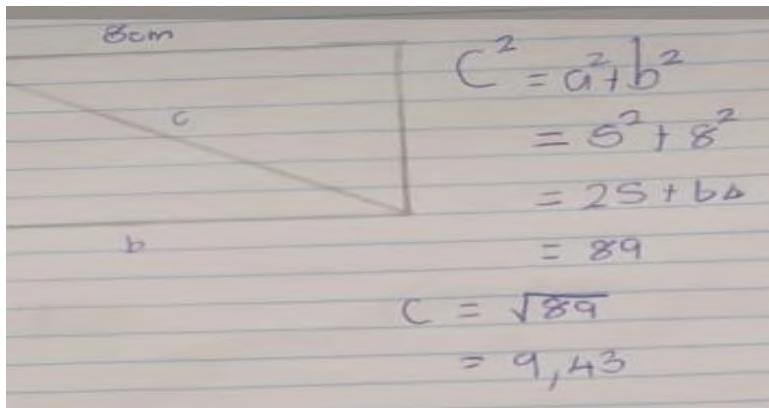 8cm
c
b
C² = a² + b²
= 5² + 8²
= 25 + 64
= 89
C = √89
= 9,43